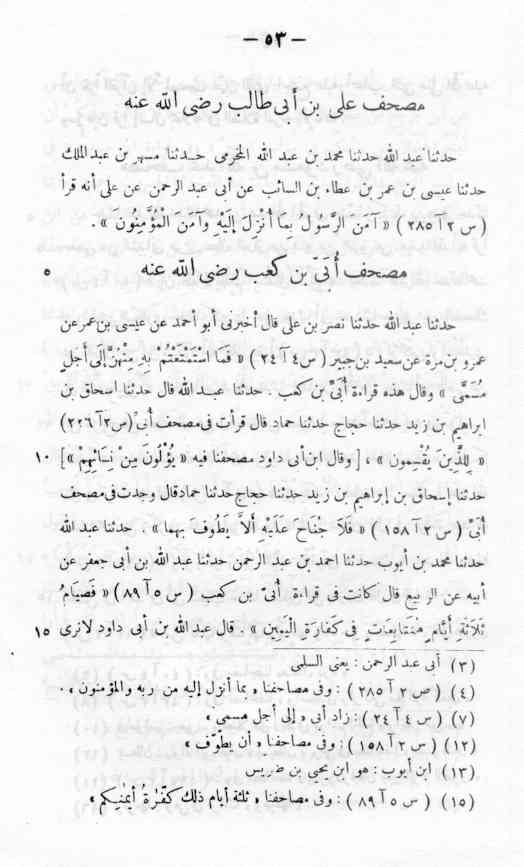 — ٥٣ —
مصحف على بن أبى طالب رضى الله عنه
حدثنا عبد الله حدثنا محمد بن عبد الله المخرمى حدثنا مسهر بن عبد الملك
حدثنا عيسى بن عمر بن عطاء بن السائب عن أبى عبد الرحمن عن على أنه قرأ
( س ٢ آ ٢٨٥ ) « آمَنَ الرَّسُولُ بِمَا أُنْزِلَ إِلَيْهِ وَآمَنَ الْمُؤْمِنُونَ » .
مصحف أُبَىّ بن كعب رضى الله عنه ٥
حدثنا عبد الله حدثنا نصر بن على قال أخبرنى أبو أحمد عن عيسى بن عمر عن
عمرو بن مرة عن سعيد بن جبير ( س ٤ آ ٢٤ ) « فَمَا اسْتَمْتَعْتُمْ بِهِ مِنْهُنَّ إِلَى أَجَلٍ
مُسَمًّى » وقال هذه قراءة أُبَىّ بن كعب . حدثنا عبد الله قال حدثنا اسحاق بن
ابراهيم بن زيد حدثنا حجاج حدثنا حماد قال قرأت فى مصحف أُبىّ (س ٢ آ ٢٢٦)
« لِلَّذِينَ يُقْسِمون » ، [ وقال ابن أبى داود مصحفنا فيه « يُؤْلُونَ مِنْ نِسَائِهِمْ »] ١٠
حدثنا إسحاق بن إبراهيم بن زيد حدثنا حجاج حدثنا حماد قال وجدت فى مصحف
أُبَىّ ( س ٢ آ ١٥٨ ) « فَلَا جُنَاحَ عَلَيْهِ أَلاَّ يَطَّوَّفَ بِهِمَا » . حدثنا عبد الله
حدثنا محمد بن أيوب حدثنا احمد بن عبد الرحمن حدثنا عبد الله بن أبى جعفر عن
أبيه عن الربيع قال كانت فى قراءة أُبىّ بن كعب ( س ٥ آ ٨٩ ) « فَصِيَامُ
ثَلَاثَةِ أَيَّامٍ مُتَتَابِعَاتٍ فى كَفَّارَةِ الْيَمِينِ » . قال عبد الله بن أبى داود لانرى ١٥
(٣) أبى عبد الرحمن : يعنى السلمى
(٤) ( ص ٢ آ ٢٨٥ ) : وفى مصاحفنا « بما أنزل إليه من ربه والمؤمنون » .
(٧) ( س ٤ آ ٢٤ ) : زاد أبى « إلى أجل مسمى »
(١٢) ( س ٢ آ ١٥٨ ) : وفى مصاحفنا « أن يطّوّف »
(١٣) ابن أيوب : هو ابن يحيى بن ضريس
(١٥) ( س ٥ آ ٨٩ ) : وفى مصاحفنا « ثلثة أيام ذلك كفّٰرةُ أيمٰنيكم »